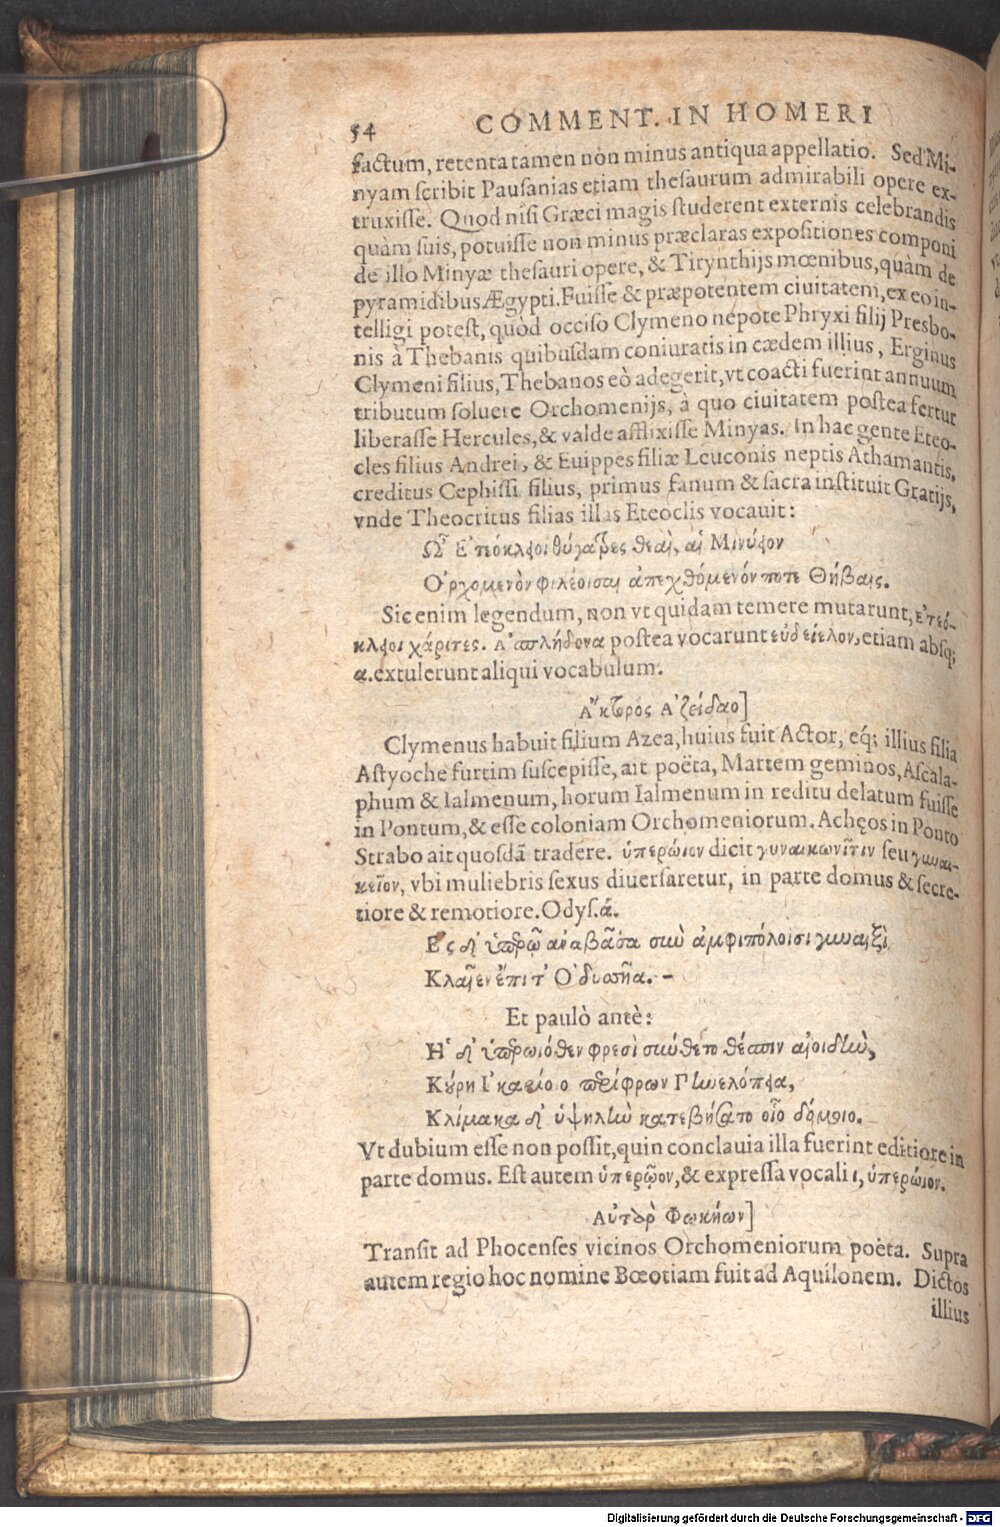 54 COMMENT. IN HOMERI
factum, retenta tamen non minus antiqua appellatio. Sed Mi-
nyam scribit Pausanias etiam thesaurum admirabili opere ex-
truxisse. Quod nisi Græci magis studerent externis celebrandis
quàm suis, potuisse non minus præclaras expositiones componi
de illo Minyæ thesauri opere, & Tirynthijs mœnibus, quàm de
pyramidibus Ægypti. Fuisse & præpotentem ciuitatem, ex eo in-
telligi potest, quòd occiso Clymeno nepote Phryxi filij Presbo-
nis à Thebanis quibusdam coniuratis in cædem illius, Erginus
Clymeni filius, Thebanos eò adegerit, vt coacti fuerint annuum
tributum soluere Orchomenijs, à quo ciuitatem postea fertur
liberasse Hercules, & valde afflixisse Minyas. In hac gente Eteo-
cles filius Andrei, & Euippes filiæ Leuconis neptis Athamantis,
creditus Cephissi filius, primus fanum & sacra instituit Gratijs,
vnde Theocritus filias illas Eteoclis vocauit:
Ὦ Ἐτεόκλειοι θύγατρες θεαὶ, αἱ Μινύειον
Ὀρχομενὸν φιλέοισαι ἀπεχθόμενόν ποτε Θήβαις.
Sic enim legendum, non vt quidam temere mutarunt, ἐτεό-
κλειοι χάριτες. Ἀσπλήδονα postea vocarunt εὐδείελον, etiam absq;
α. extulerunt aliqui vocabulum.
Ἄκτορος Ἀζείδαο]
Clymenus habuit filium Azea, huius fuit Actor, eq́; illius filia
Astyoche furtim suscepisse, ait poëta, Martem geminos, Ascala-
phum & Ialmenum, horum Ialmenum in reditu delatum fuisse
in Pontum, & esse coloniam Orchomeniorum. Achęos in Ponto
Strabo ait quosdã tradere. ὑπερώιον dicit γυναικωνῖτιν seu γυναι-
κεῖον, vbi muliebris sexus diuersaretur, in parte domus & secre-
tiore & remotiore. Odys. ά.
Ἐς δ' ὑπερῷ' ἀναβᾶσα σὺν ἀμφιπόλοισι γυναιξὶ
Κλαῖεν ἔπιτ' Ὀδυσῆα. –
Et paulò antè:
Ἡ δ' ὑπερωιόθεν φρεσὶ σύνθετο θέσπιν ἀοιδὴν,
Κούρη Ἰκαρίοιο περίφρων Πηνελόπεια,
Κλίμακα δ' ὑψηλὴν κατεβήσατο οἷο δόμοιο.
Vt dubium esse non possit, quin conclauia illa fuerint editiore in
parte domus. Est autem ὑπερῷον, & expressa vocali ι, ὑπερώιον.
Αὐτὰρ Φωκήων]
Transit ad Phocenses vicinos Orchomeniorum poëta. Supra
autem regio hoc nomine Bœotiam fuit ad Aquilonem. Dictos
illius
Digitalisierung gefördert durch die Deutsche Forschungsgemeinschaft - DFG